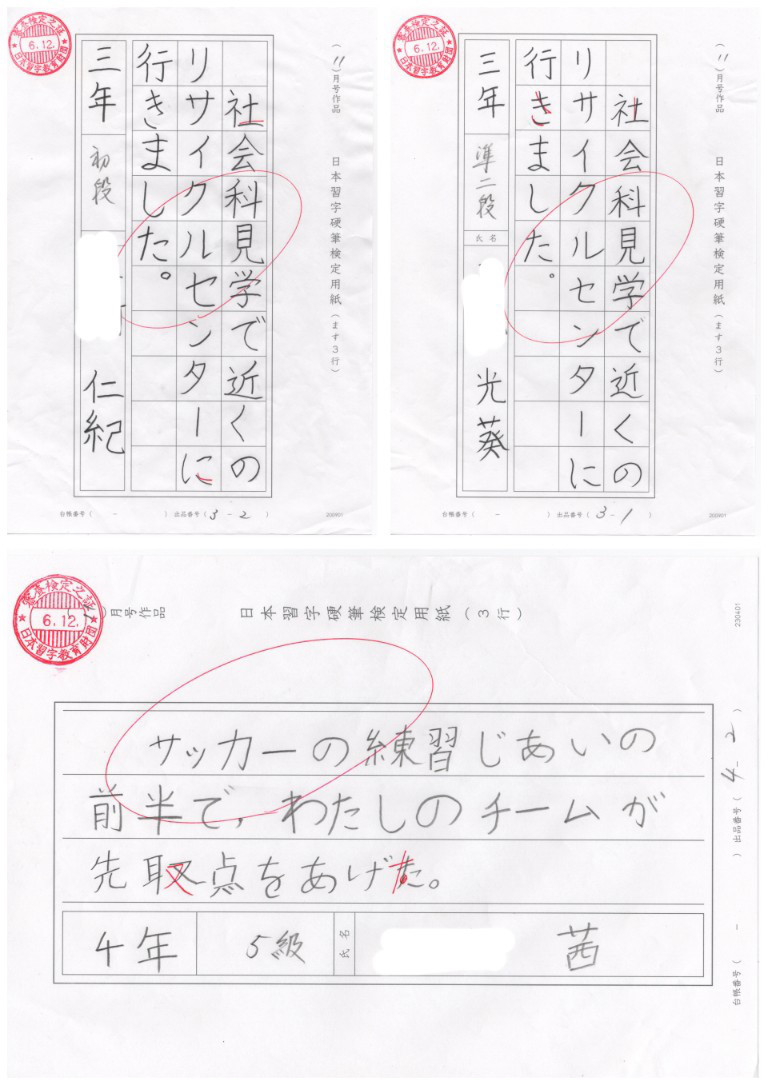 審査検定之証
6.12.
日本習字教育財団
(11)月号作品 日本習字硬筆検定用紙(ます3行)
社会科見学で近くの
リサイクルセンターに
行きました。
三年 初段 仁紀
台帳番号( - ) 出品番号(3-2)
230401
審査検定之証
6.12.
日本習字教育財団
(11)月号作品 日本習字硬筆検定用紙(ます3行)
社会科見学で近くの
リサイクルセンターに
行きました。
三年 準二段 氏名 光葵
台帳番号( - ) 出品番号(3-1)
230401
審査検定之証
6.12.
日本習字教育財団
)月号作品 日本習字硬筆検定用紙(3行)
サッカーの練習じあいの
前半で,わたしのチームが
先取点をあげた。
4年 5級 氏名 茜
230401
台帳番号( - ) 出品番号(4-2)